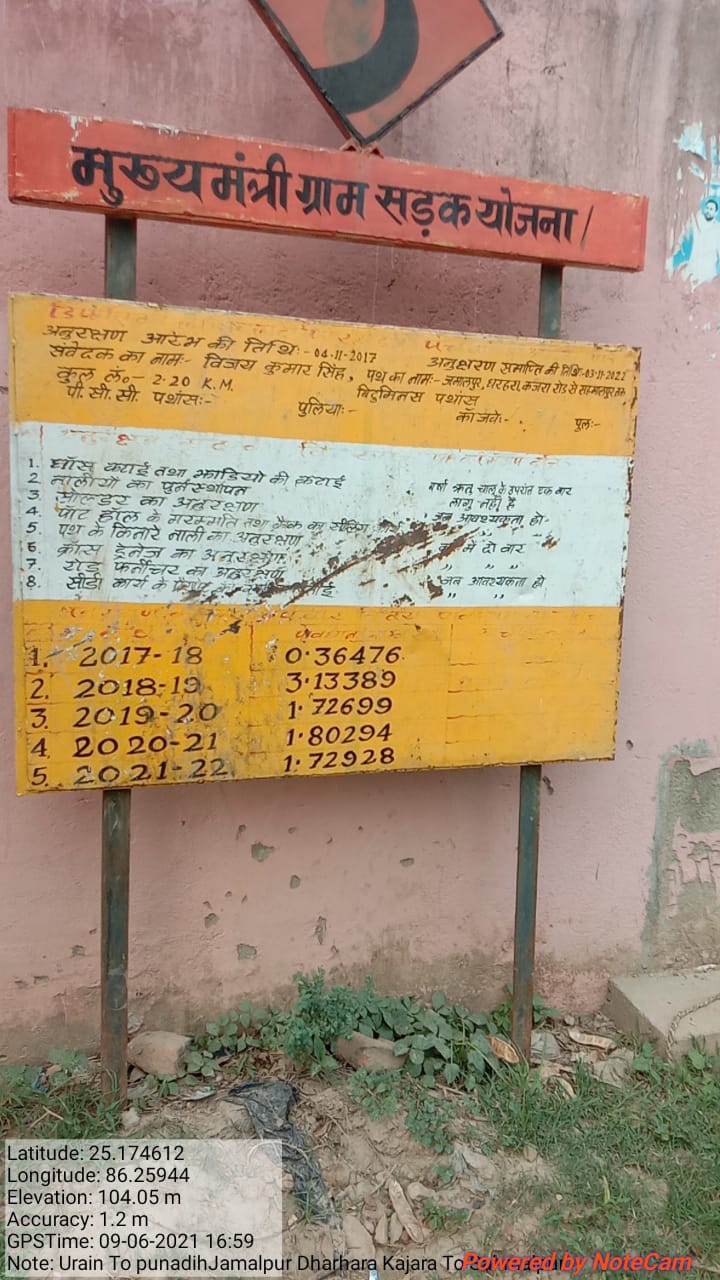 मुख्यमंत्री ग्राम सड़क योजना/
अनुरक्षण आरंभ की तिथिः- 04.11.2017 अनुक्षरण समाप्ति की तिथिः-03.11.2022
संवेदक का नामः- विजय कुमार सिंह, पथ का नामः- जमालपुर, धरहरा, कजरा रोड से
कुल लं०- 2.20 K.M. बिटुमिनस पथाँस
पी.सी.सी. पथाँसः- पुलियाः- कॉजवेः- पुलः-
1. घाँस कटाई तथा झाडियो की कटाई वर्षा ऋतु चालू के उपरांत एक बार
2. नालीयो का पुर्नस्थापन लागू नही है
3. सोल्डर का अनुरक्षण जब आवश्यकता हो-
4. पॉट हॉल के मरम्मति तथा क्रैक का सीलिंग कार्य " "
5. पथ के किनारे नाली का अनुरक्षण में दो बार
6. क्रॉस ड्रेनेज का अनुरक्षण " "
7. रोड फर्नीचर का अनुरक्षण जब आवश्यकता हो
8. सीडी कार्य के " "
1. 2017-18 0.36476
2. 2018-19 3.13389
3. 2019-20 1.72699
4 2020-21 1.80294
5. 2021-22 1.72928
Latitude: 25.174612
Longitude: 86.25944
Elevation: 104.05 m
Accuracy: 1.2 m
GPSTime: 09-06-2021 16:59
Note: Urain To punadihJamalpur Dharhara Kajara To
Powered by NoteCam